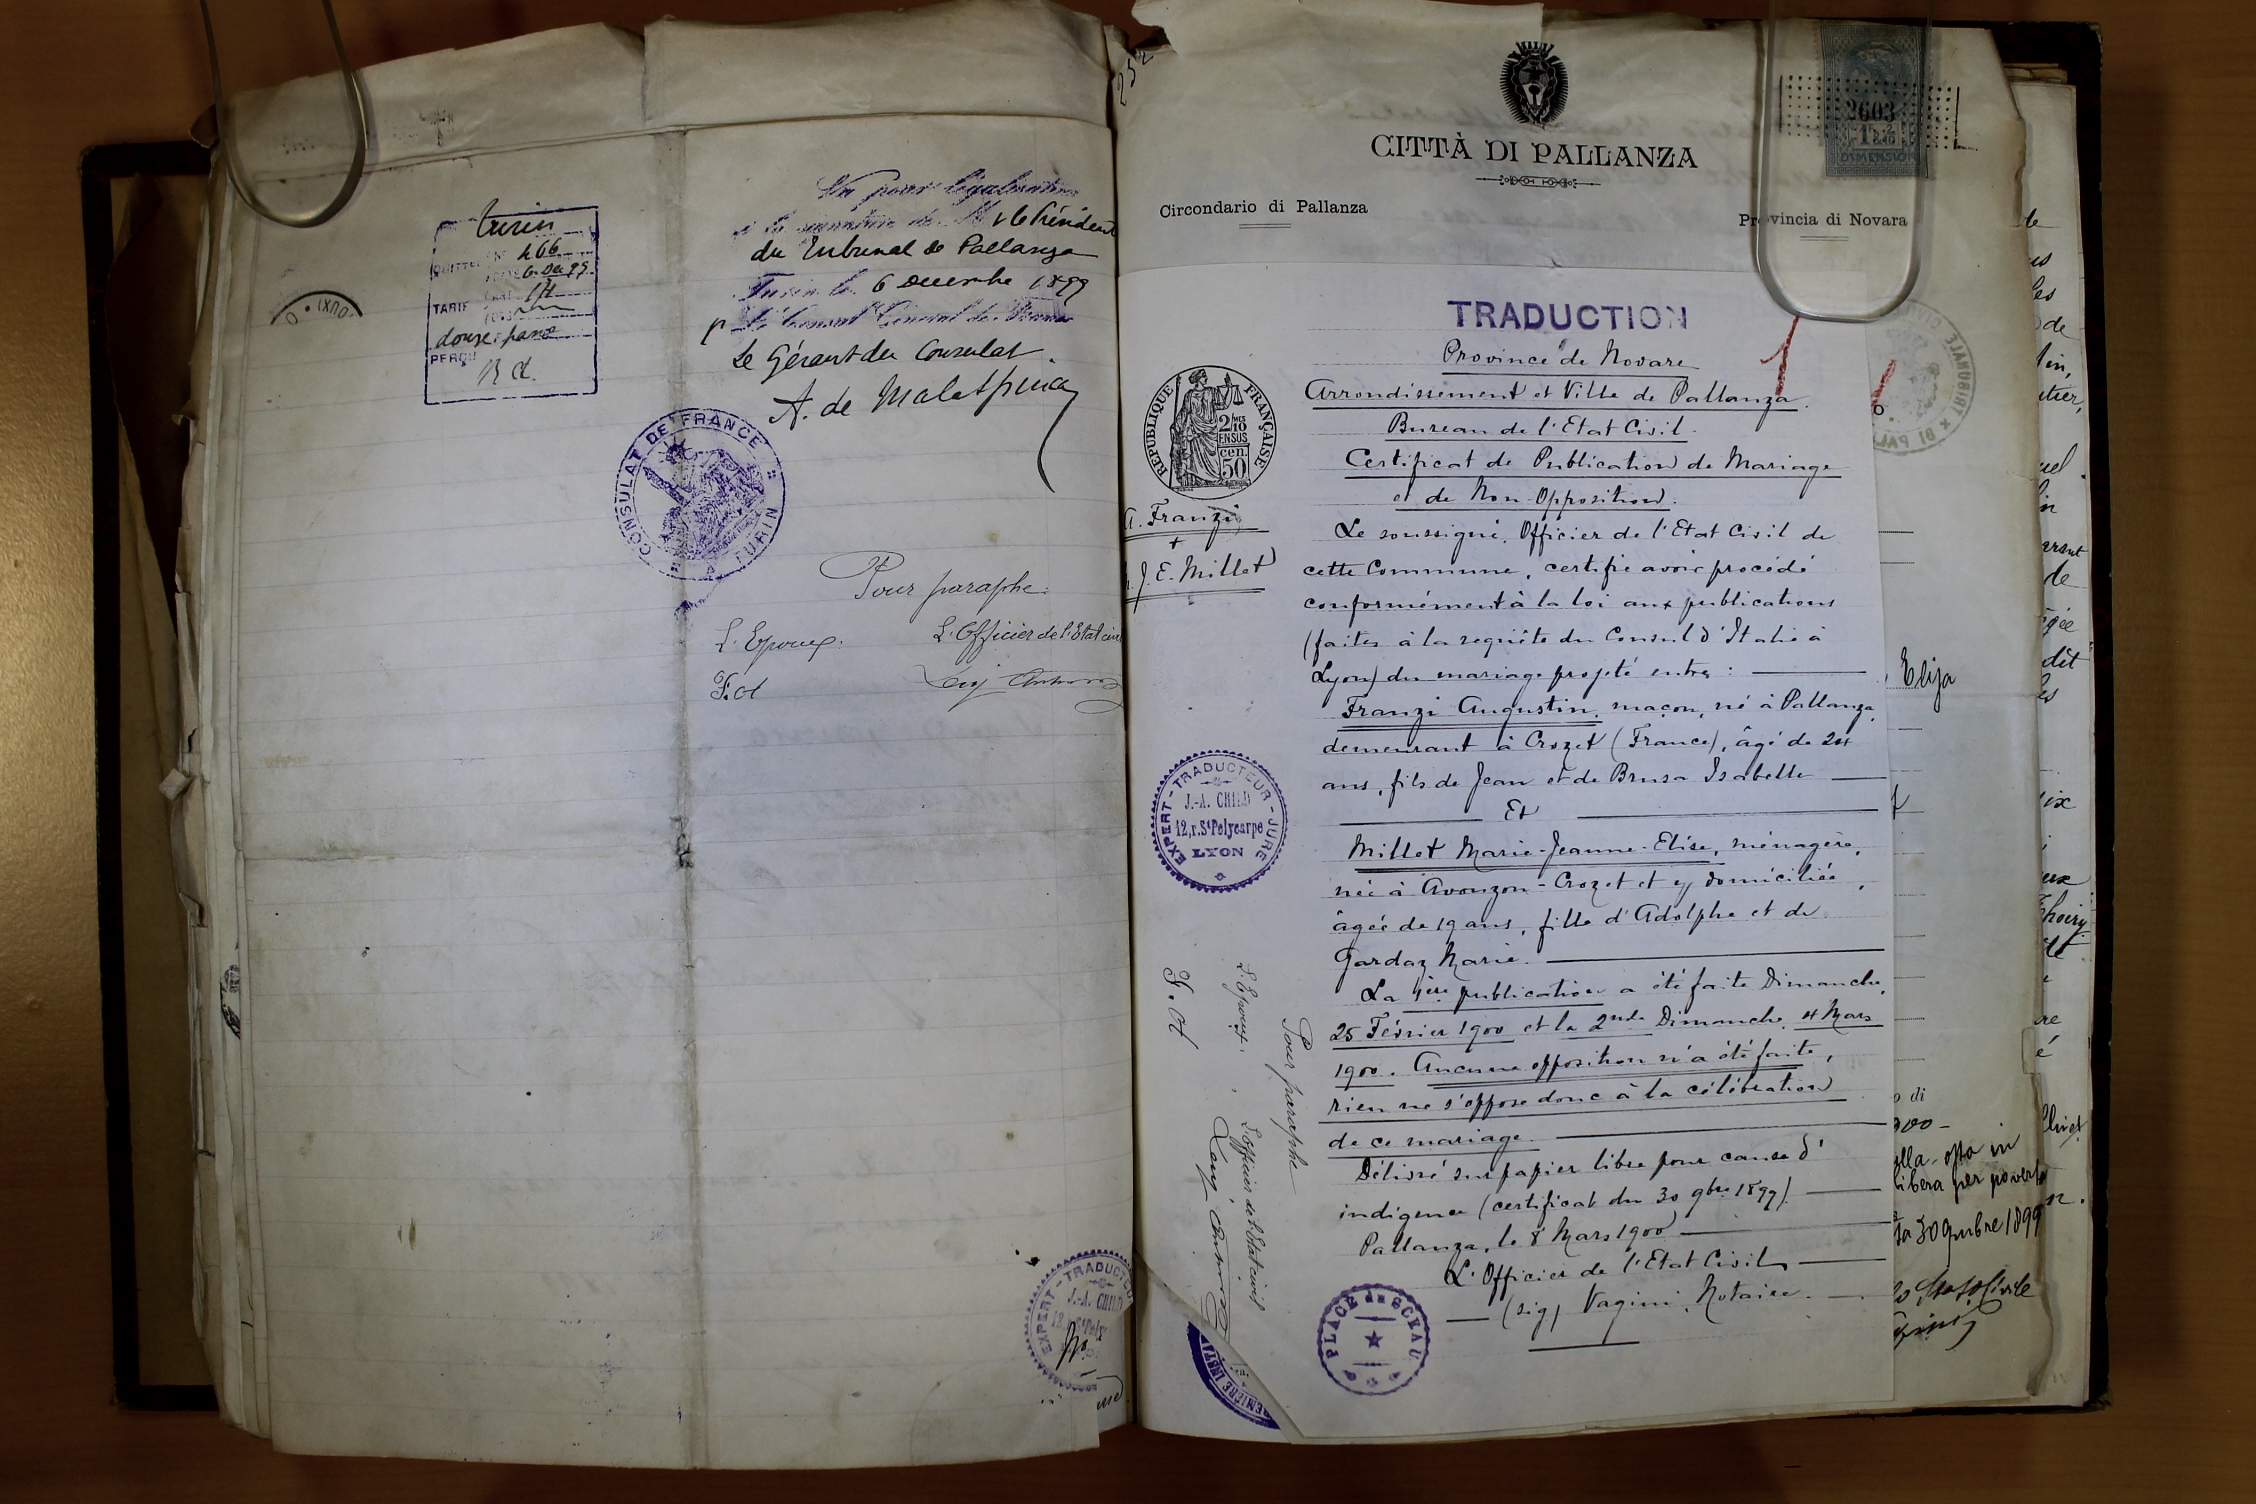 Turin
466
6 Dec 99
TARIF
douze francs
PERÇU
12 ct.
Vu pour légalisation
de la signature de M r le Président
du Tribunal de Pallanza
Turin le 6 Décembre 1899
p. Le Consul Général de France
Le Gérant du Consulat.
A. de Malespina
CONSULAT DE FRANCE
A TURIN
Pour paraphe:
L'Epoux: L'Officier de l'Etat civil
F. A
EXPERT - TRADUCTEUR
J.-A. CHILD
252
CITTÀ DI PALLANZA
Circondario di Pallanza
Provincia di Novara
2603
DIMENSION
TRADUCTION
1
Province de Novare
Arrondissement et Ville de Pallanza.
Bureau de l'Etat Civil.
Certificat de Publication de Mariage
et de Non-Opposition.
REPUBLIQUE FRANÇAISE
2/10
EN SUS
cen.
50
A. Franzi
+
J. E. Millet
Le soussigné, Officier de l'Etat Civil de
cette Commune, certifie avoir procédé
conformément à la loi aux publications
(faites à la requête du Consul d'Italie à
Lyon) du mariage projeté entre:
Franzi Augustin, maçon, né à Pallanza,
demeurant à Crozet (France), âgé de 24
ans, fils de Jean et de Brusa Isabelle
Et
Millet Marie-Jeanne-Elise, ménagère,
née à Avouzon-Crozet et y domiciliée,
âgée de 19 ans, fille d'Adolphe et de
Gardaz Marie.
La 1ère publication a été faite Dimanche,
25 Février 1900 et la 2nde Dimanche, 4 Mars
1900. Aucune opposition n'a été faite,
rien ne s'oppose donc à la célébration
de ce mariage.
Délivré sur papier libre pour cause d'
indigence (certificat du 30 9bre 1899)
Pallanza, le 8 Mars 1900
L'Officier de l'Etat Civil
(sig) Vagini, Notaire.
EXPERT-TRADUCTEUR-JURÉ
J.-A. CHILD
12, r. St Polycarpe
LYON
Pour paraphe
L'Epoux: L'officier de l'Etat civil
F. A
PLACE du SCEAU
Elisa
libera per povertà
30 9mbre 1899
Stato Civile